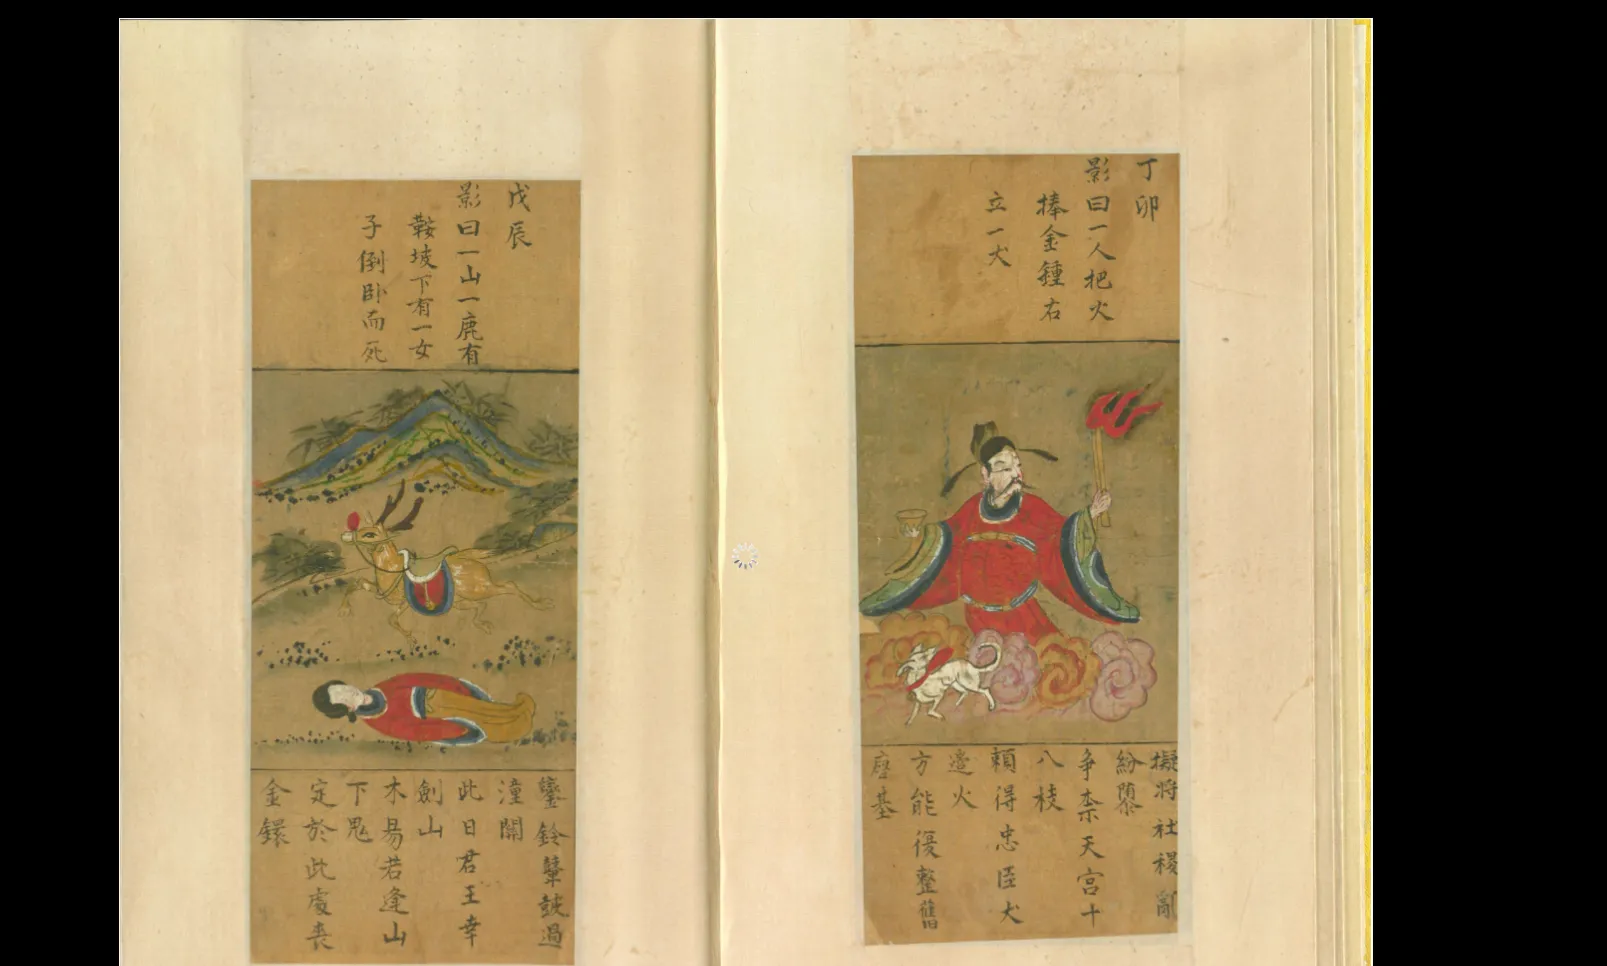 丁卯
影曰一人把火
捧金鍾右
立一犬
擬將社稷亂
紛
争柰天宮十
八枝
頼得忠臣犬
邊火
方能復整舊
唐基
戊辰
影曰一山一鹿有
鞍坡下有一女
子倒卧而死
鑾鈴鼙鼓過
潼關
此日君王幸
劍山
木易若逢山
下鬼
定於此處喪
金鐶